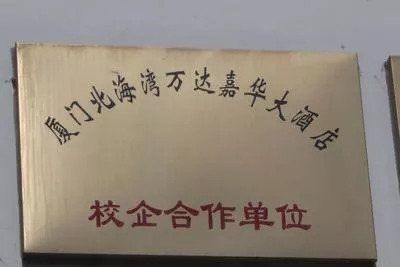 厦门北海湾万达嘉华大酒店
校企合作单位